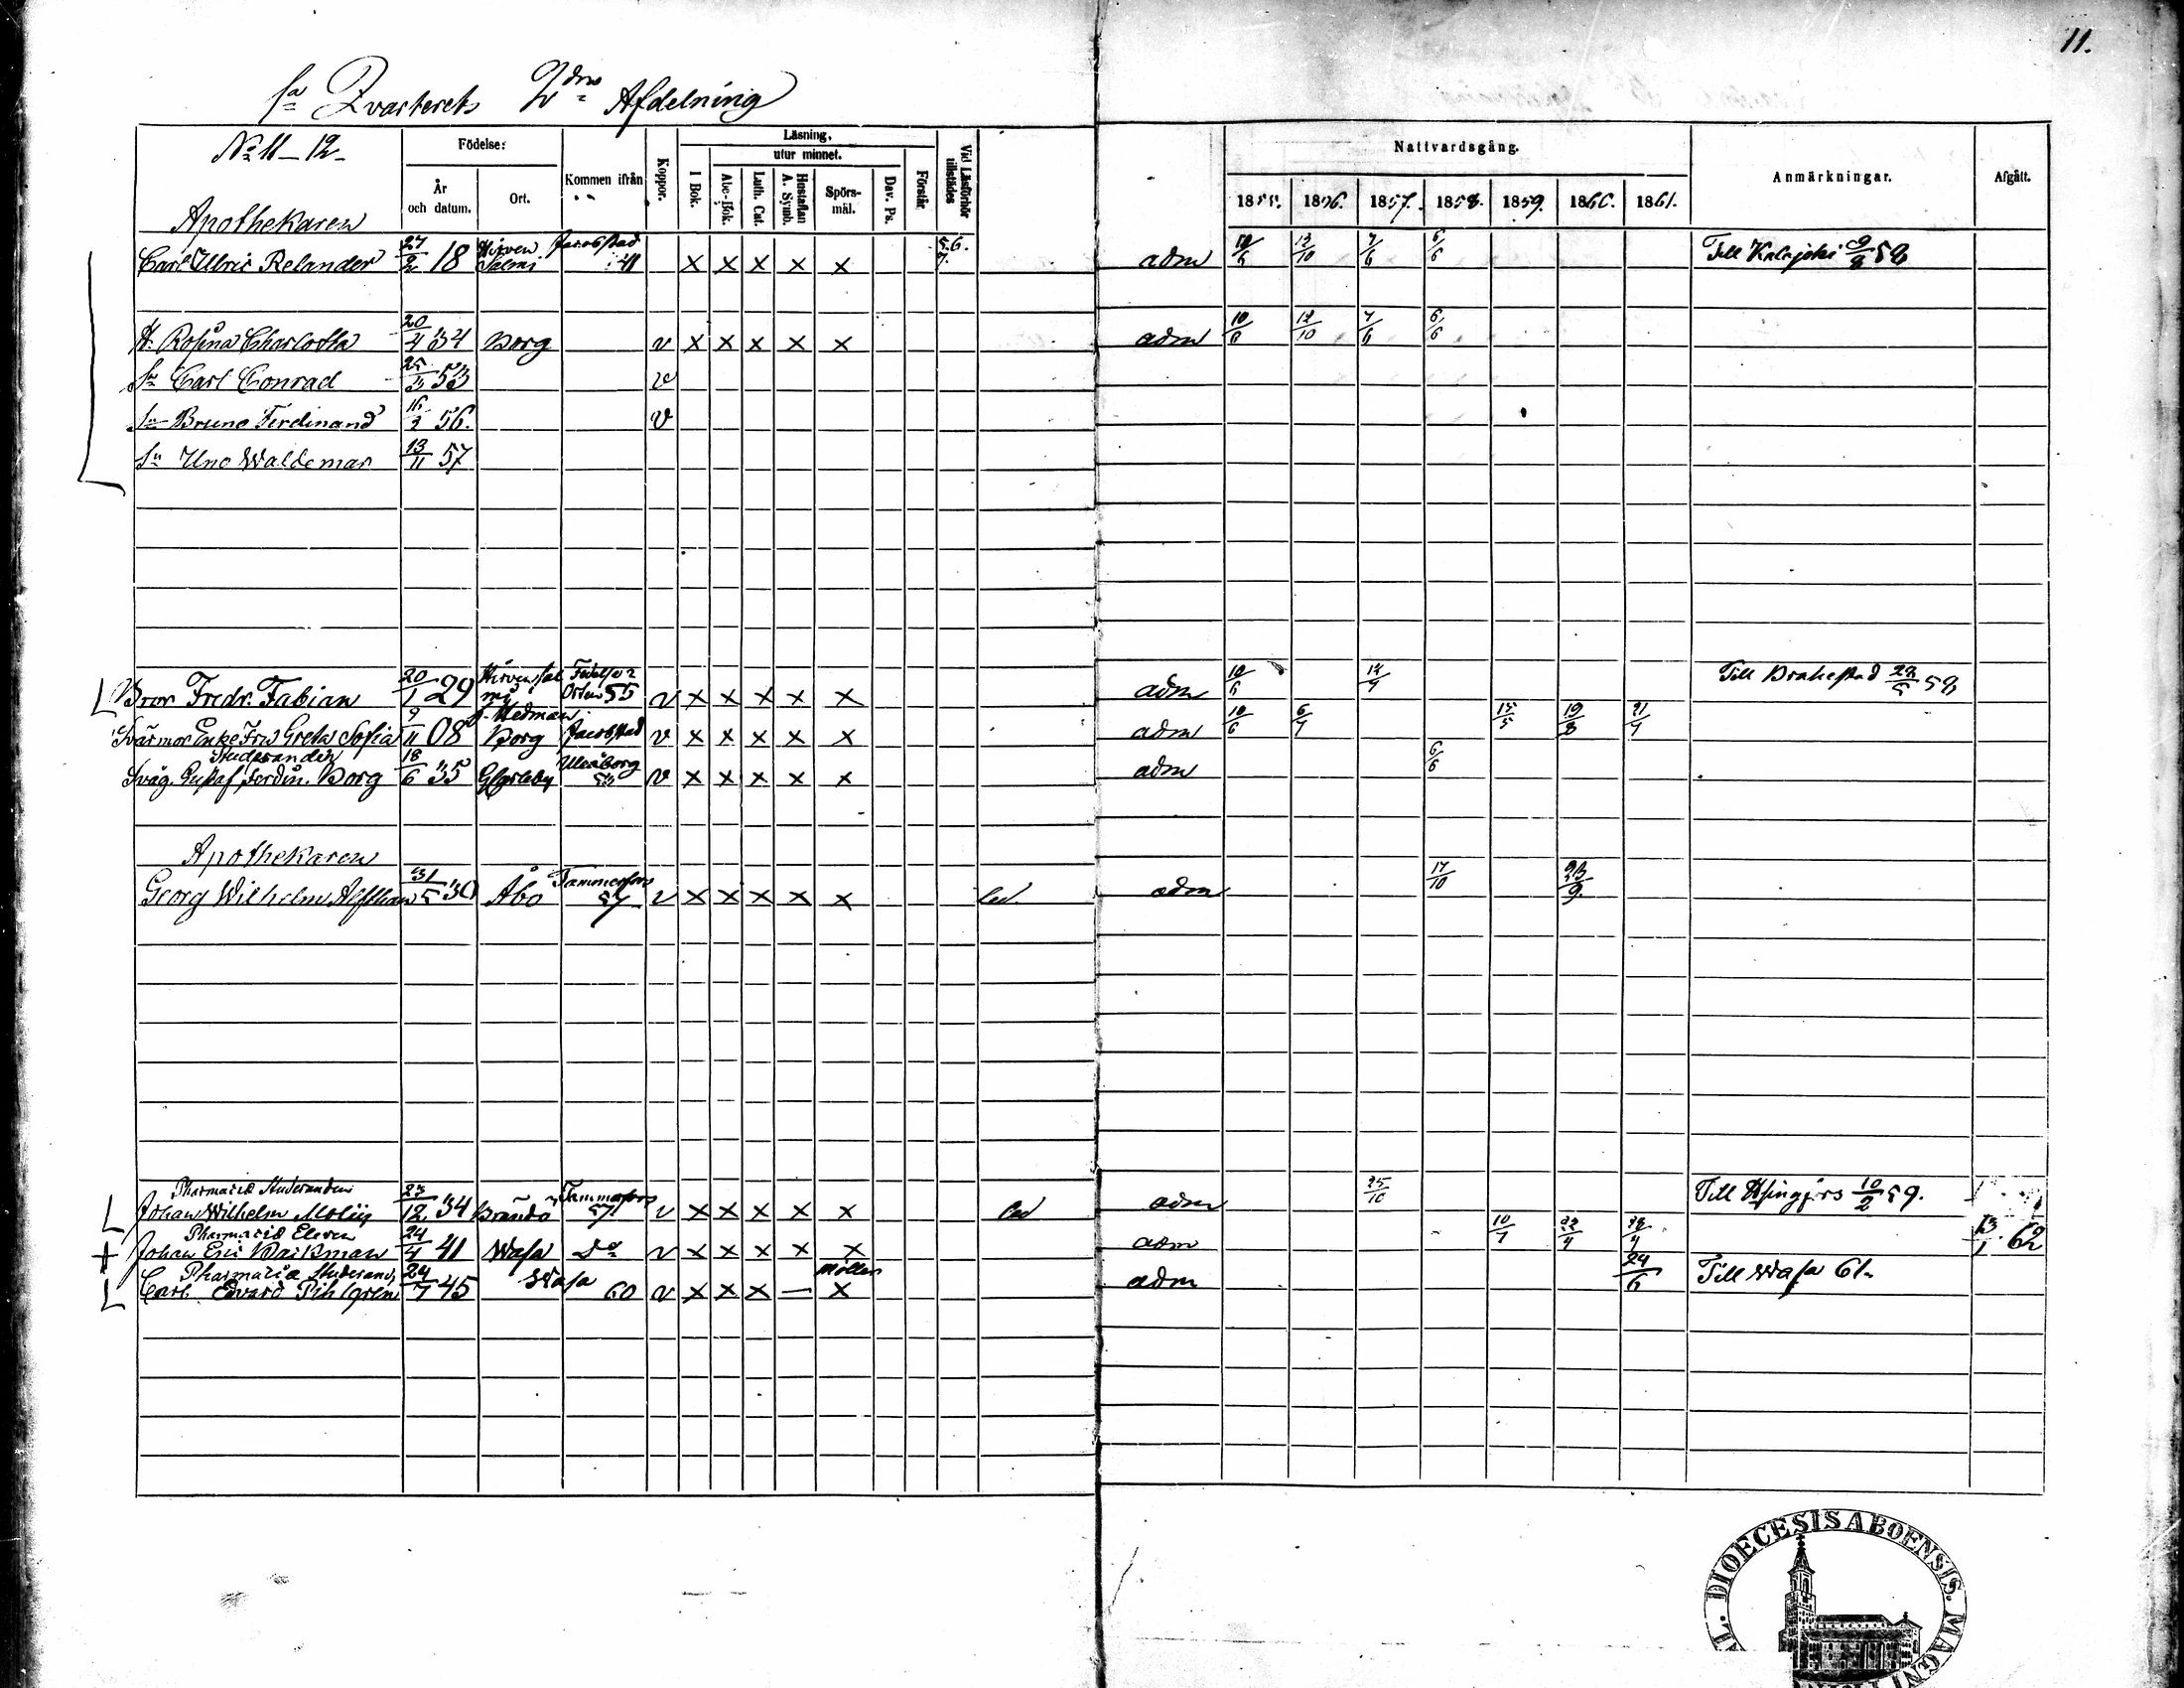 11.
1sta Qvarterets 2dra Afdelning
No 11–12–
Födelse:
År och datum.
Ort.
Kommen ifrån
Koppor.
Läsning,
utur minnet.
I Bok.
Abc-Bok.
Luth. Cat.
Hustaflan A. Symb.
Spörs-mål.
Dav. Ps.
Förstår.
Vid Läsförhör tillstädes
Nattvardsgång.
1855. 1856. 1857. 1858. 1859. 1860. 1861.
Anmärkningar.
Afgått.
Apothekaren
Carl Ulric Relander 27/2 18 Hirven Salmi Jacobstad 41 x x x x x 5.6.7. adm 10/6 12/10 7/6 6/6 Till Kalajoki 9/8 58
H. Rosina Charlotta 20/4 34 Borg v x x x x x adm 10/6 12/10 7/6 6/6
Sn Carl Conrad 25/3 53 v
Sn Bruno Ferdinand 16/2 56. v
Sn Uno Waldemar 13/11 57
Bror Fredr. Fabian 20/1 29 Hirvensalmi Födelse Orten 55 v x x x x x adm 10/6 12/4 Till Brahestad 22/5 58
f. Hedman
Svärmor Enke Fru Greta Sofia 9/11 08 Borg Jacobstad v x x x x x adm 10/6 6/4 15/5 19/8 21/4
Studeranden
Svåg. Gustaf Ferdin. Borg 18/6 35 Glkarleby Uleåborg 53 v x x x x x adm 6/6
Apothekaren
Georg Wilhelm Alfthan 31/5 30 Åbo Tammerfors 57 v x x x x x led. adm 17/10 23/9
Pharmacie Studeranden
Johan Wilhelm Molin 23/12 34 Brändö Tammerfors 57 v x x x x x led adm 25/10 Till Hsingfors 10/2 59.
Pharmacie Eleven
Johan Eric Backman 24/4 41 Wasa Do v x x x x x adm 10/4 22/4 28/4 13/1 62
Pharmacia Studerand.
Carl Edvard Pihlgren 24/7 45 Wasa 60 v x x x — Möller x adm 24/6 Till Wasa 61.
DIOECESIS ABOENSIS. MAGNI